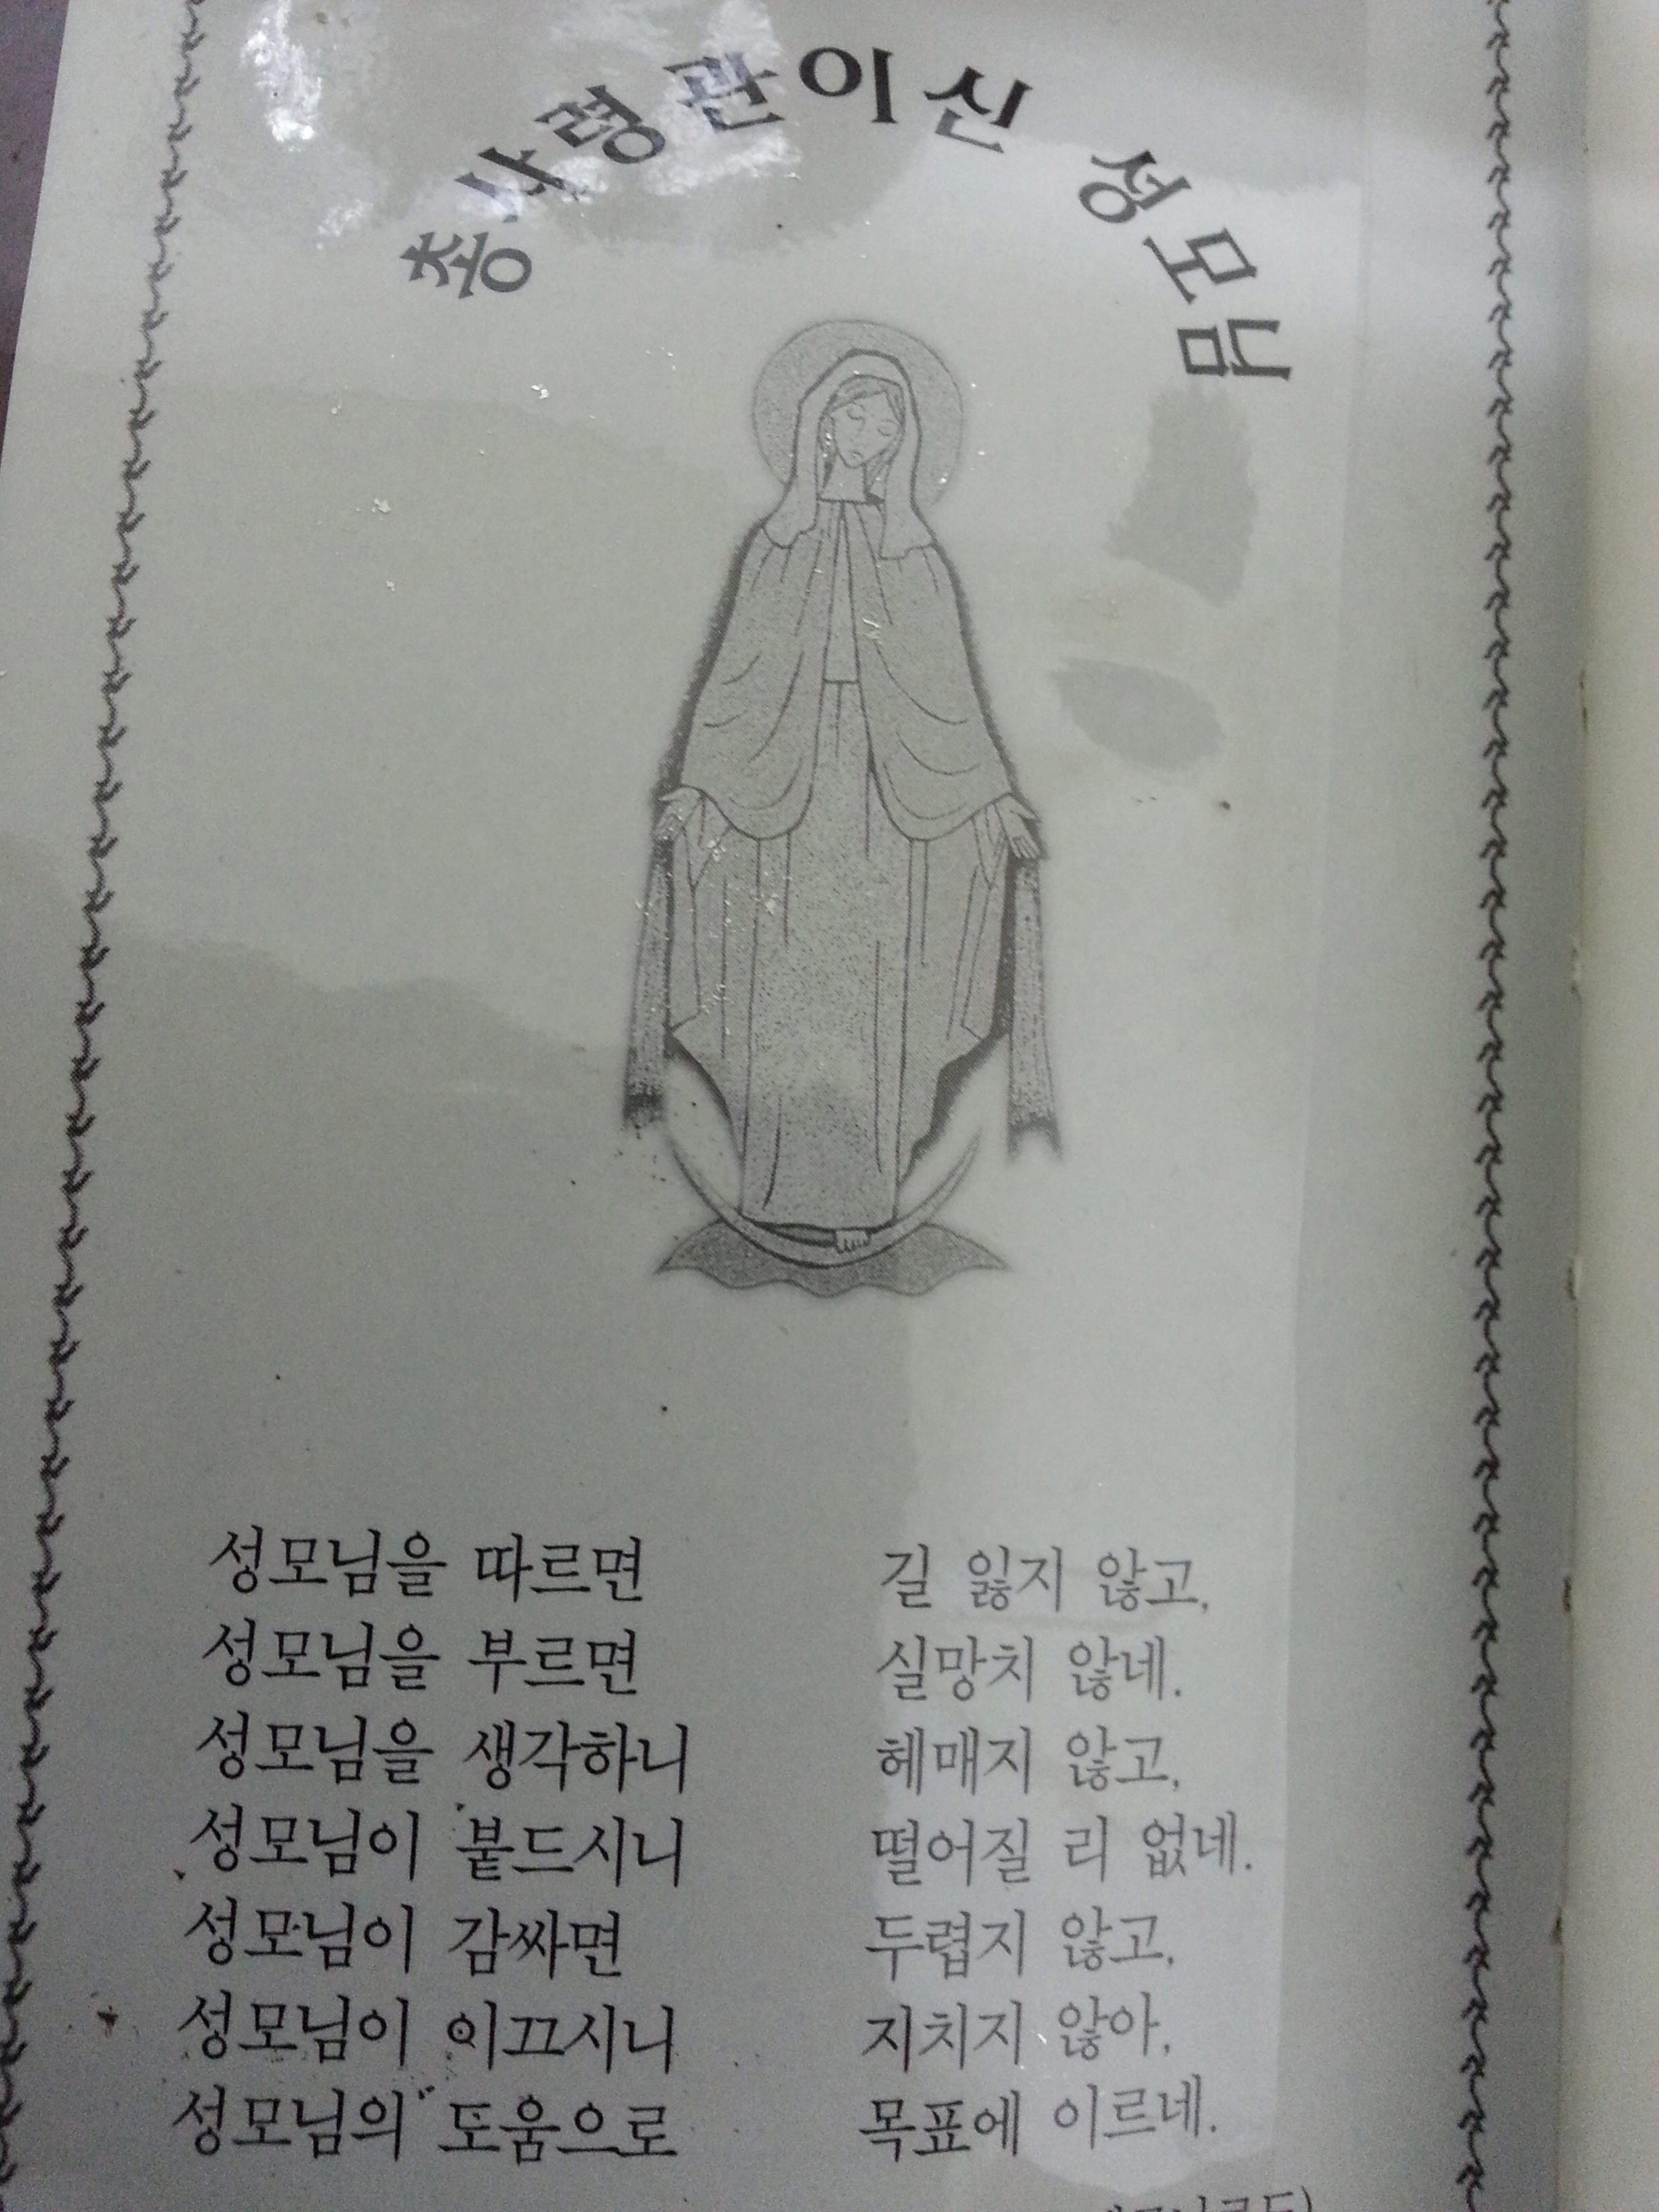 총사령관이신 성모님
성모님을 따르면 길 잃지 않고,
성모님을 부르면 실망치 않네.
성모님을 생각하니 헤매지 않고,
성모님이 붙드시니 떨어질 리 없네.
성모님이 감싸면 두렵지 않고,
성모님이 이끄시니 지치지 않아,
성모님의 도움으로 목표에 이르네.